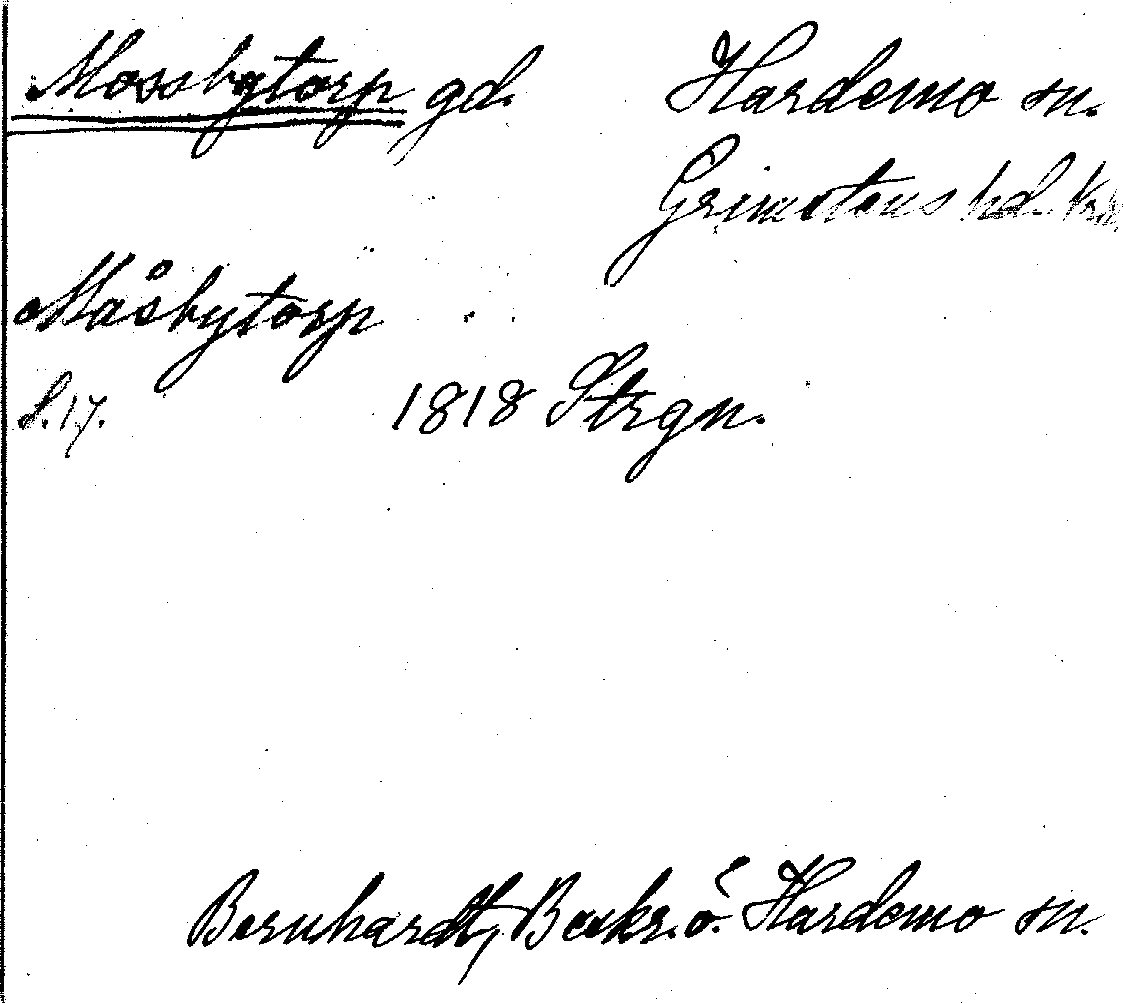 Mossbytorp gd. Hardemo sn.
Grimstens hd.
Måsbytorp
S. 17. 1818 Strgn.
Bernhardt, Beskr. ö. Hardemo sn.